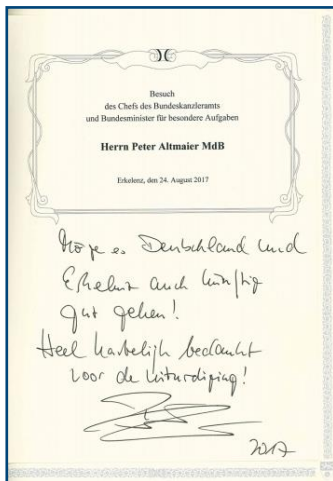 Besuch
des Chefs des Bundeskanzleramts
und Bundesminister für besondere Aufgaben
Herrn Peter Altmaier MdB
Erkelenz, den 24. August 2017
Möge es Deutschland und
Erkelenz auch künftig
gut gehen!
Heel hartelijk bedankt
voor de uitnodiging!
2017